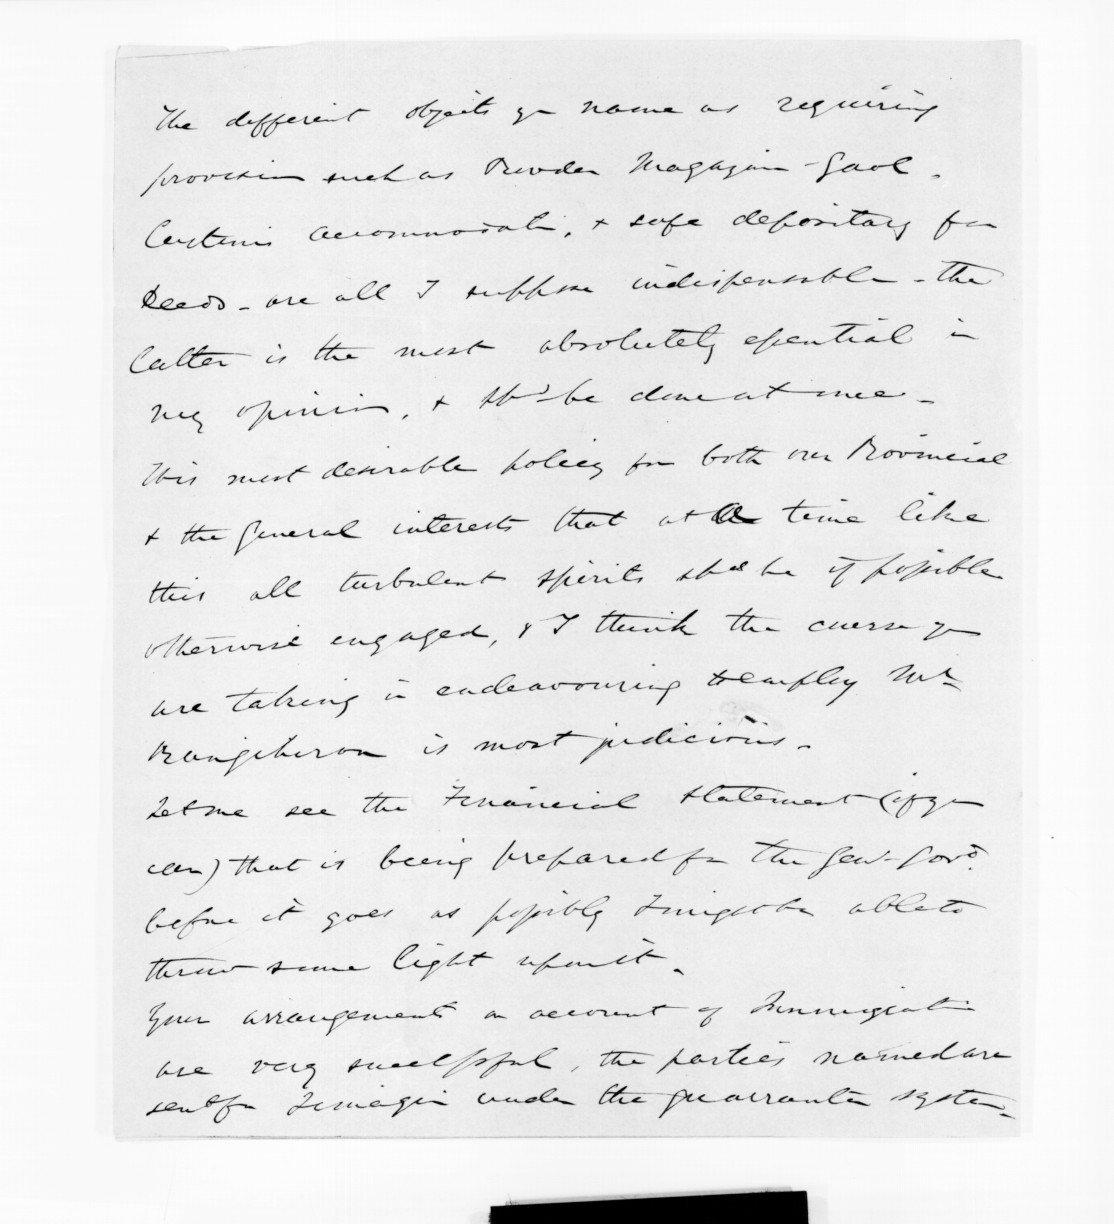 The different objects you name as requiring
provision such as Powder Magazine - Gaol.
Customs accommodati, & safe depositary for
Deeds - are all I suppose indispensable - the
latter is the most absolutely essential in
my opinion, & shd be done at once -
This most desirable policy for both our Provincial
& the General interests that at a time like
this all turbulent spirits shd be if possible
otherwise engaged, & I think the course you
are taking in endeavouring to employ Mr
is most judicious.
Let me see the Financial statement (if you
can) that is being prepared for the Genl. Govt.
before it goes as possibly I might be able to
throw some light upon it.
Your arrangements on account of Immigrati
are very successful, the parties named are
sent for I imagine under the guarrantee system -